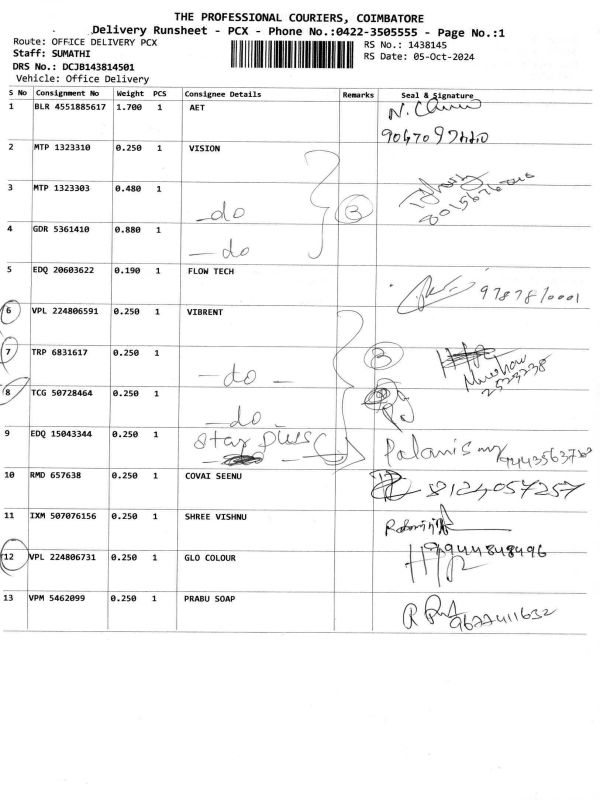 THE PROFESSIONAL COURIERS, COIMBATORE
Delivery Runsheet - PCX - Phone No.:0422-3505555 - Page No.:1
Route: OFFICE DELIVERY PCX
RS No.: 1438145
Staff: SUMATHI
RS Date: 05-Oct-2024
DRS No.: DCJB143814501
Vehicle: Office Delivery
S No Consignment No Weight PCS Consignee Details Remarks Seal & Signature
1 BLR 4551885617 1.700 1 AET
2 MTP 1323310 0.250 1 VISION
3 MTP 1323303 0.480 1 -do 3
4 GDR 5361410 0.880 1 -do
5 EDQ 20603622 0.190 1 FLOW TECH 9787810001
6 VPL 224806591 0.250 1 VIBRENT
7 TRP 6831617 0.250 1 -do - 3
8 TCG 50728464 0.250 1 -do
9 EDQ 15043344 0.250 1 star plus Palanisamy
10 RMD 657638 0.250 1 COVAI SEENU 8124057257
11 IXM 507076156 0.250 1 SHREE VISHNU
9944848496
12 VPL 224806731 0.250 1 GLO COLOUR
13 VPM 5462099 0.250 1 PRABU SOAP 9677411632